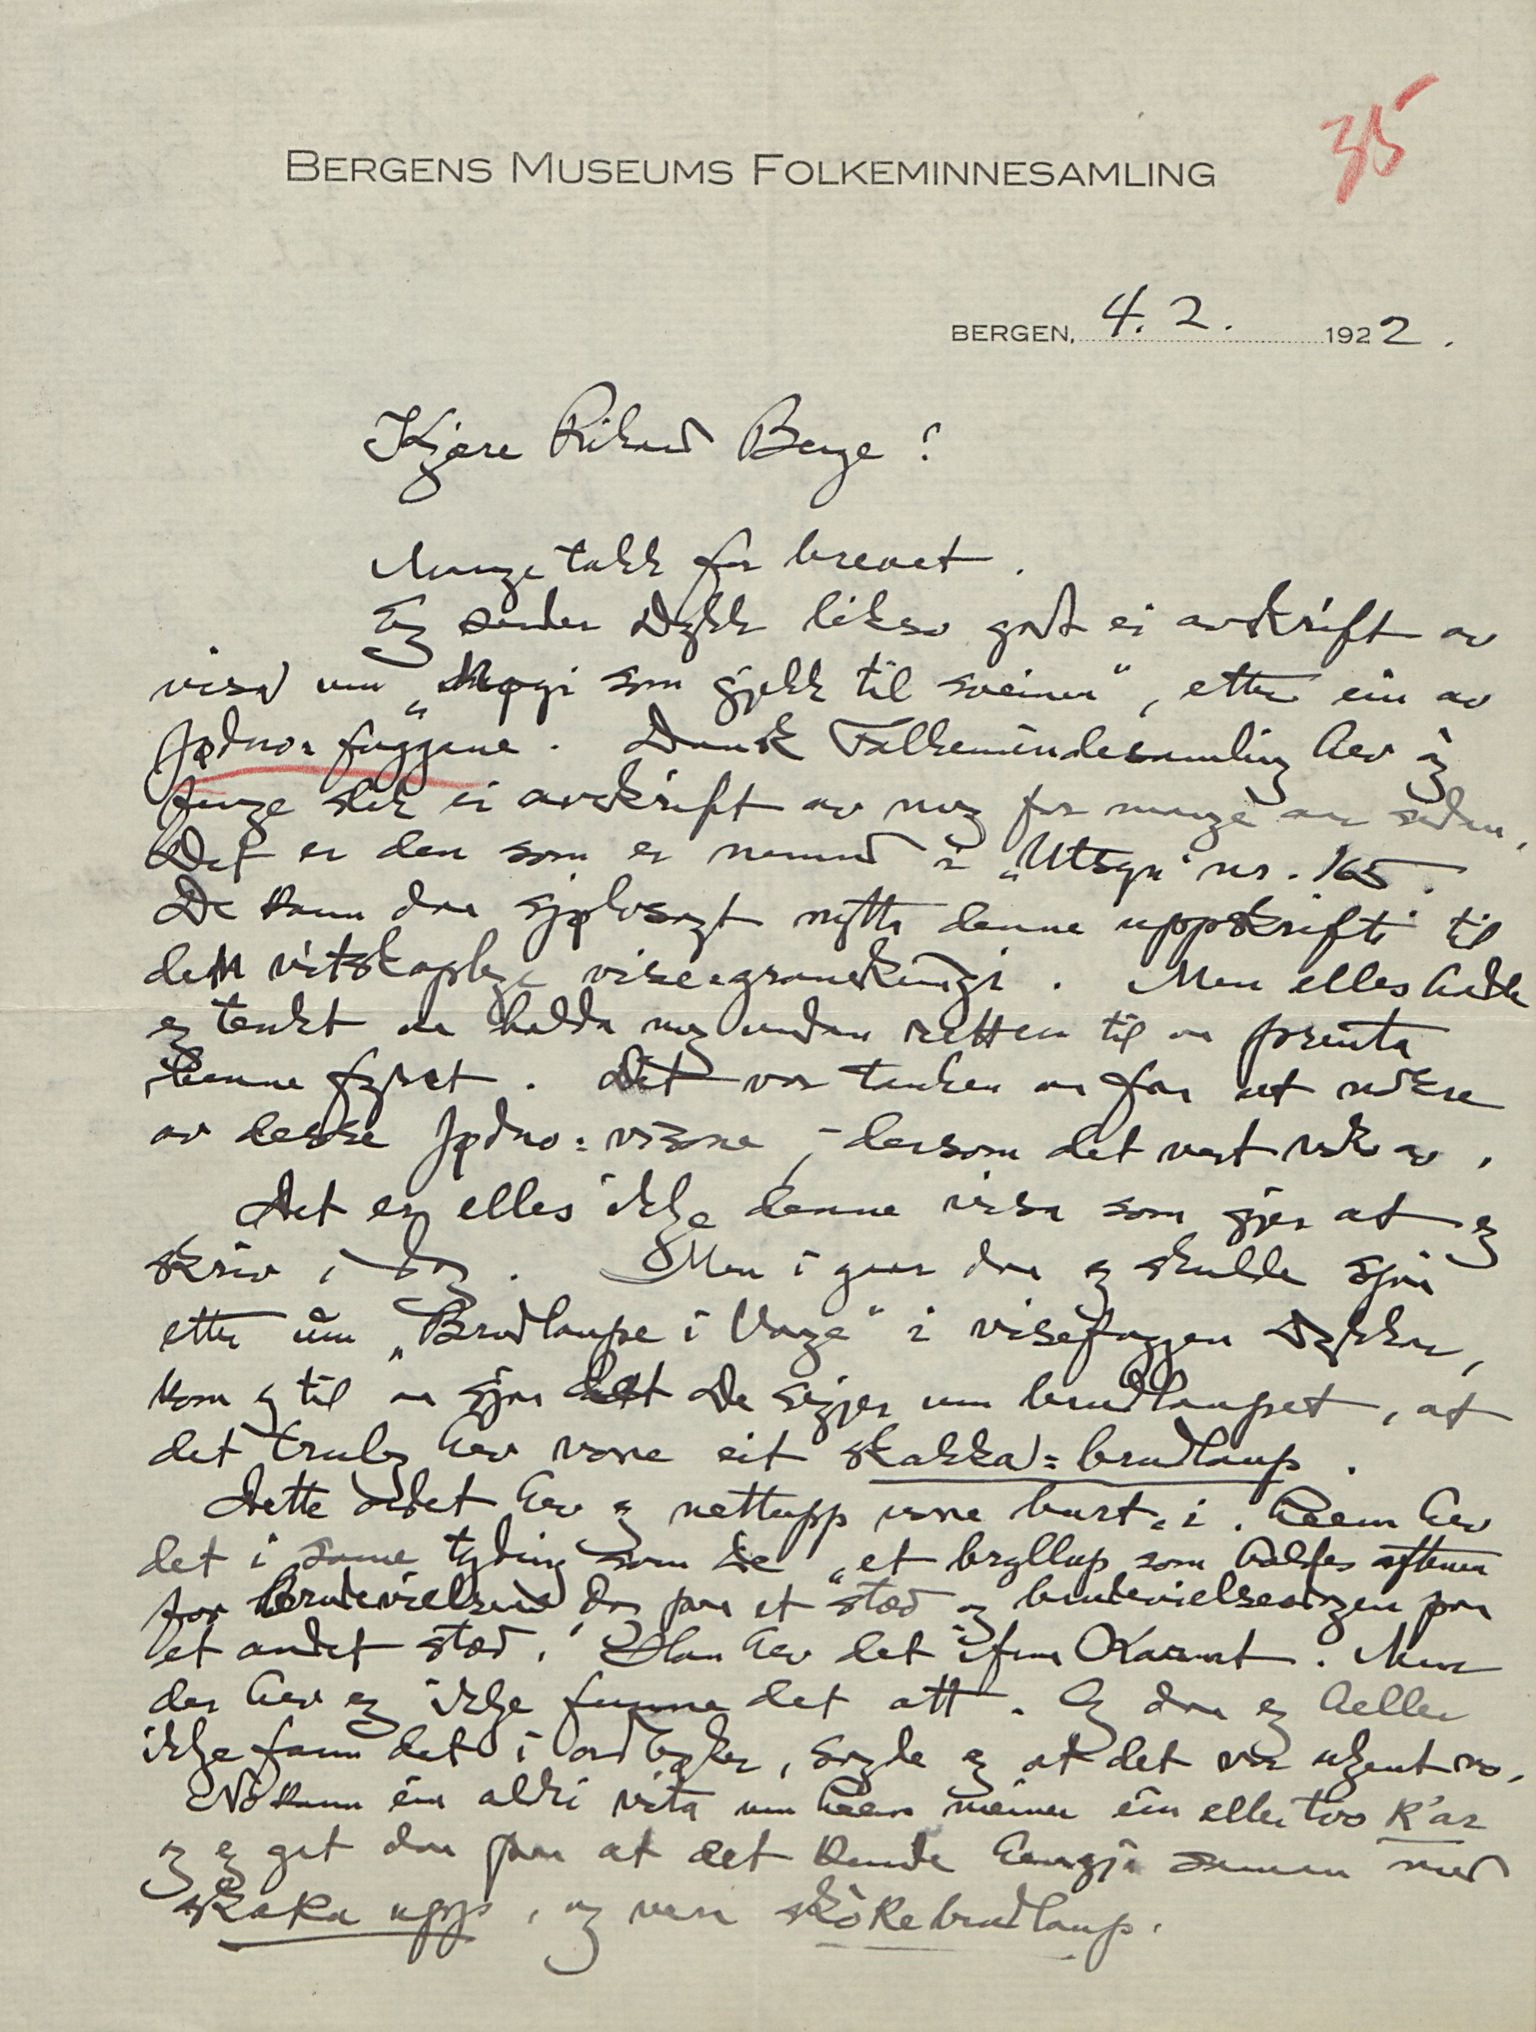 35
BERGENS MUSEUMS FOLKEMINNESAMLING
BERGEN, 4. 2. 1922.
Kjære Rikard Berge!
Mange takk for brevet.
Eg sender Dykk likso godt ei avskrift av
visa um "Møyi som gjekk til sveinen", etter ein av
Jødno-fuggane. Dansk Folkemindesamling hev og
fenge slik ei avskrift av meg for mange aar sidan.
Det er den som er nemnd i "Utsyn" nr. 165.
De kann daa sjølvsagt nytta denne uppskrifti til
den vitskaplege visegranskingi. Men elles hadde
eg tenkt aa halda meg undan retten til aa prenta
henne fyrst. Det var tanken aa faa ut nokre
av desse Jødno-visone, - dersom det vert nok av.
Det er elles ikkje denne visa som gjer at eg
skriv i dag. Men i gaar daa eg skulde sjaa
etter um "Brudlaupe i Vage" i visefuggen Dykkar,
kom eg til aa sjaa det De segjer um brudlaupet, at
det truleg hev vore eit skakka-brudlaup.
Dette ordet hev eg nettupp vore burt-i. Heem hev
det i same tyding som De "et bryllup som holdes aftenen
for brudevielsens dag paa et sted og brudevielsesdagen paa
et andet sted." Han hev det ifraa Karmt. Men
der hev eg ikkje funne det att. Og daa eg heller
ikkje fann det i ordbøker, sagde eg at det var ukjent no.
No kann ein aldri vita um Heem meiner ein eller two k'ar
og eg get daa paa at det kunde hengja saman med
skaka upp, og vera skòkebrudlaup.